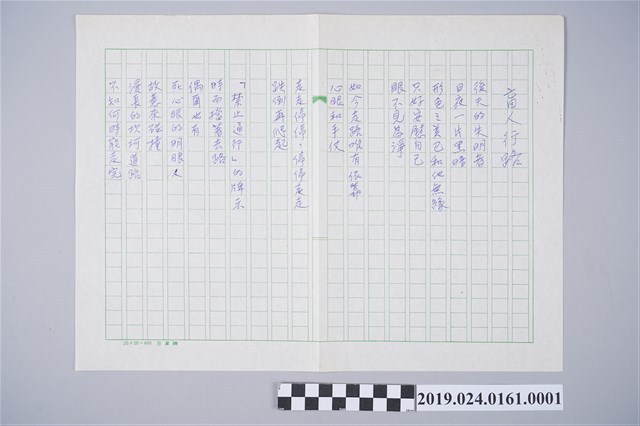 盲人行路
後天的失明者
日夜一片黑暗
形色之美已和他無緣
只好安慰自己
眼不見為淨
如今走路唯有依靠
心眼和手仗
走走停停,停停走走
跌倒再爬起
「禁止通行」的牌示
時而擋著去路
偶爾也有
死心眼的明眼人
故意來碰撞
漫長的坎坷道路
不知何時能走完
2019.024.0161.0001